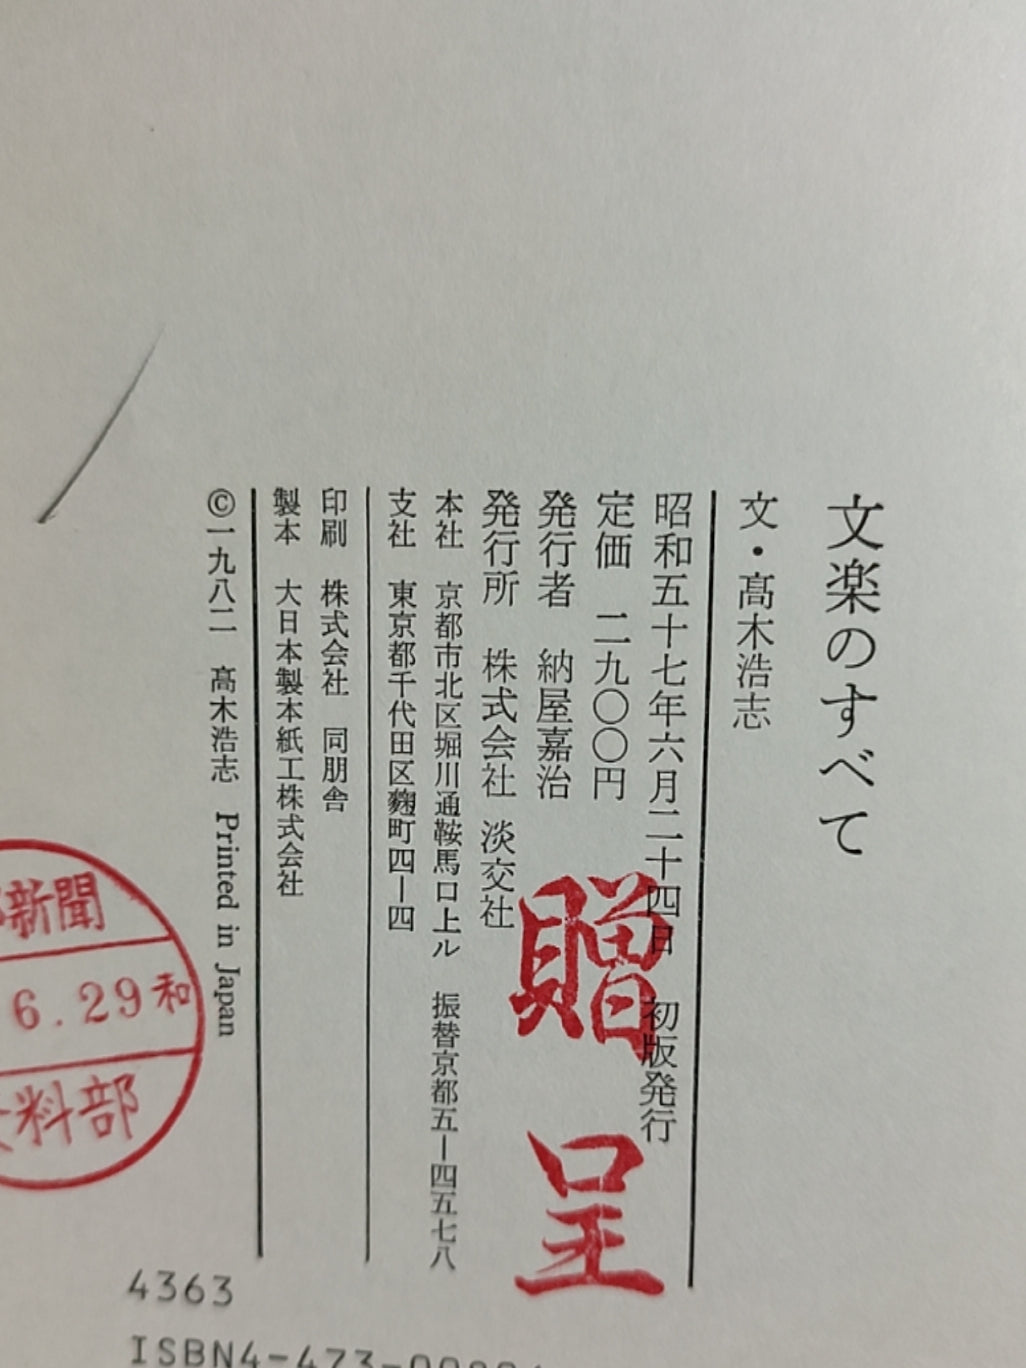 文楽のすべて
文・髙木浩志
昭和五十七年六月二十四日 初版発行
定価 二九〇〇円
発行者 納屋嘉治
発行所 株式会社 淡交社
本社 京都市北区堀川通鞍馬口上ル 振替京都五―四五七八
支社 東京都千代田区麴町四―四
印刷 株式会社 同朋舎
製本 大日本製本紙工株式会社
©一九八二 髙木浩志 Printed in Japan
贈呈
新聞
6.29 和
料部
4363
ISBN4-473-